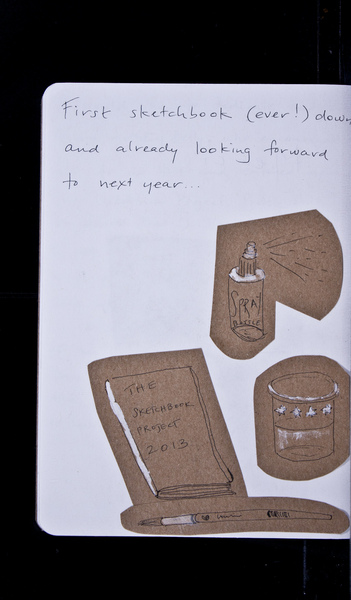 First sketchbook (ever!) down
and already looking forward
to next year...
SPRAY
BOTTLE
THE
SKETCHBOOK
PROJECT
2013